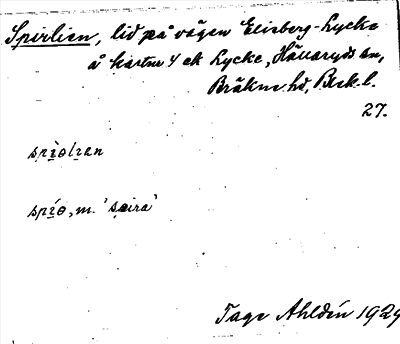 Spirlien, lid på vägen Elisberg-Lycke
å kartn 4 ek Lycke, Hällaryds sn,
Bräkne hd, Blek. l.
27.
spi̱olien
spi̱o, m. 'speira'
Tage Ahldén 1929